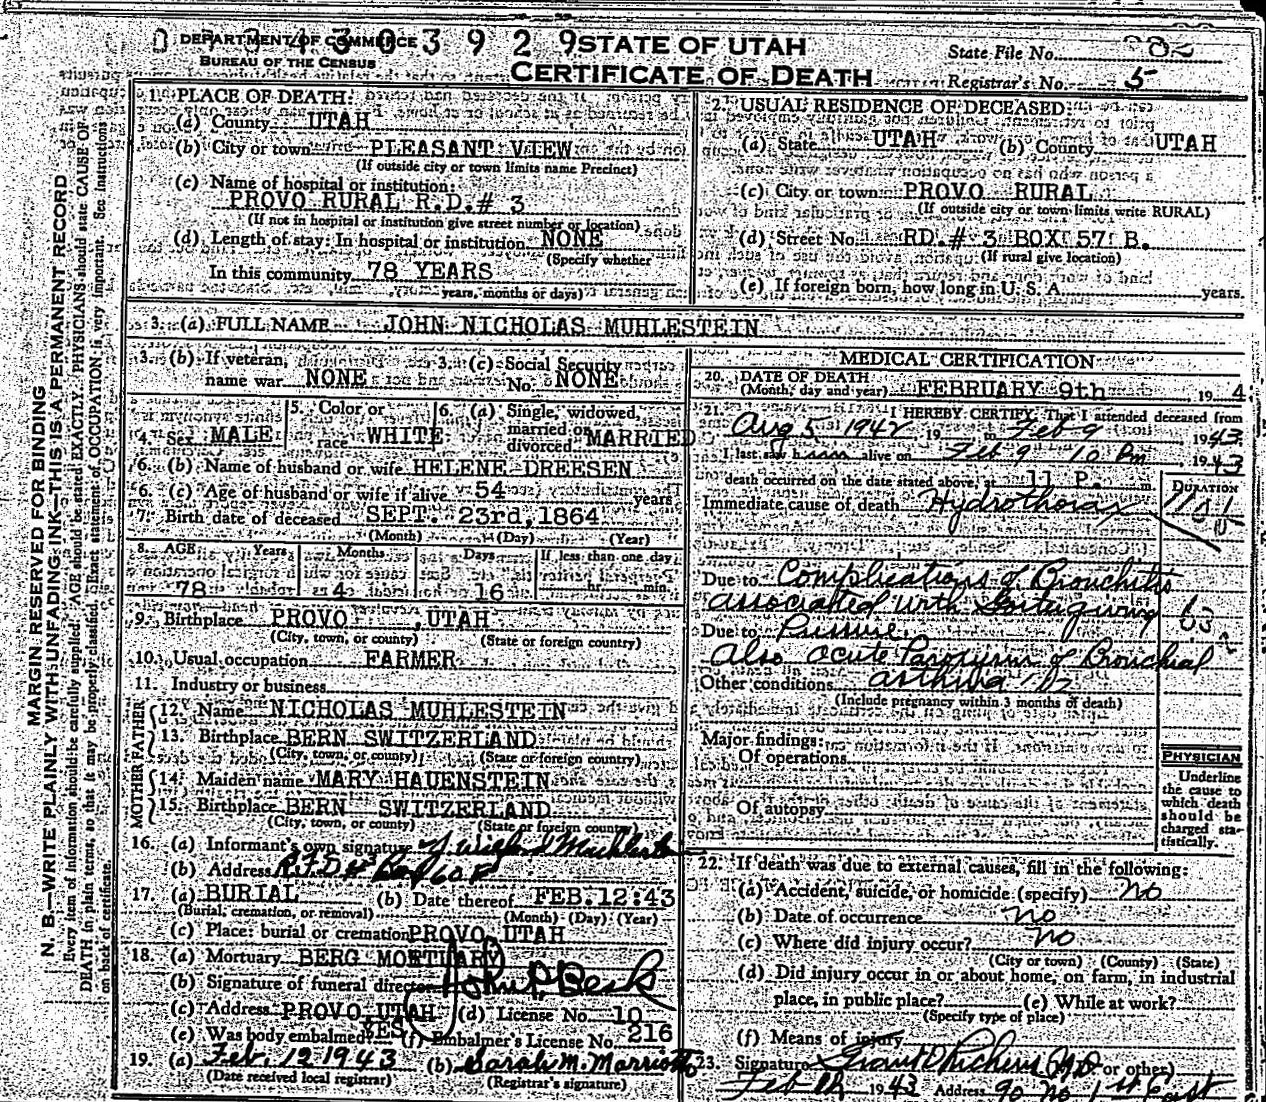 DEPARTMENT OF COMMERCE
BUREAU OF THE CENSUS
3 0 3 9 2 9
STATE OF UTAH
CERTIFICATE OF DEATH
State File No.
Registrar's No. 5
MARGIN RESERVED FOR BINDING
N. B.—WRITE PLAINLY WITH UNFADING INK—THIS IS A PERMANENT RECORD
Every item of information should be carefully supplied. AGE should be stated EXACTLY. PHYSICIANS should state CAUSE OF
DEATH in plain terms, so that it may be properly classified. Exact statement of OCCUPATION is very important. See instructions
on back of certificate.
1. PLACE OF DEATH:
(a) County UTAH
(b) City or town PLEASANT VIEW
(If outside city or town limits name Precinct)
(c) Name of hospital or institution:
PROVO RURAL R.D.# 3
(If not in hospital or institution give street number or location)
(d) Length of stay: In hospital or institution NONE
(Specify whether
In this community 78 YEARS
years, months or days)
2. USUAL RESIDENCE OF DECEASED
(a) State UTAH (b) County UTAH
(c) City or town PROVO RURAL
(If outside city or town limits write RURAL)
(d) Street No. RD.# 3 BOX 57 B.
(If rural give location)
(e) If foreign born, how long in U. S. A. years.
3. (a) FULL NAME JOHN NICHOLAS MUHLESTEIN
3. (b) If veteran, name war NONE
3. (c) Social Security No. NONE
4. Sex MALE
5. Color or race WHITE
6. (a) Single, widowed, married or divorced MARRIED
6. (b) Name of husband or wife HELENE DREESEN
6. (c) Age of husband or wife if alive 54 years
7. Birth date of deceased SEPT. 23rd, 1864
(Month) (Day) (Year)
8. AGE Years Months Days If less than one day
78 4 16 hr. min.
9. Birthplace PROVO ,UTAH
(City, town, or county) (State or foreign country)
10. Usual occupation FARMER
11. Industry or business
FATHER
12. Name NICHOLAS MUHLESTEIN
13. Birthplace BERN SWITZERLAND
(City, town, or county) (State or foreign country)
MOTHER
14. Maiden name MARY HAUENSTEIN
15. Birthplace BERN SWITZERLAND
(City, town, or county) (State or foreign country)
16. (a) Informant's own signature
(b) Address
17. (a) BURIAL (b) Date thereof FEB.12:43
(Burial, cremation, or removal) (Month) (Day) (Year)
(c) Place: burial or cremation PROVO, UTAH
18. (a) Mortuary BERG MORTUARY
(b) Signature of funeral director
(c) Address PROVO, UTAH (d) License No. 10
(e) Was body embalmed? YES (f) Embalmer's License No. 216
19. (a) Feb. 12 1943 (b) Sarah M. Marriott
(Date received local registrar) (Registrar's signature)
MEDICAL CERTIFICATION
20. DATE OF DEATH
(Month, day and year) FEBRUARY 9th 19 4
21. I HEREBY CERTIFY, That I attended deceased from
Aug 5 1942 19 to Feb 9 1943
I last saw him alive on Feb 9 10 Pm 1943
death occurred on the date stated above, at 11 P. m.
DURATION
Immediate cause of death Hydrothorax
Due to Complications of Bronchitis
associated with
Due to
Also acute Paroxysm of Bronchial
Other conditions asthma
(Include pregnancy within 3 months of death)
Major findings:
Of operations
Of autopsy
PHYSICIAN
Underline
the cause to
which death
should be
charged sta-
tistically.
22. If death was due to external causes, fill in the following:
(a) Accident, suicide, or homicide (specify) no
(b) Date of occurrence no
(c) Where did injury occur? no
(City or town) (County) (State)
(d) Did injury occur in or about home, on farm, in industrial
place, in public place? (e) While at work?
(Specify type of place)
(f) Means of injury
23. Signature MD or other)
Feb 1943 Address 90 No 1st East